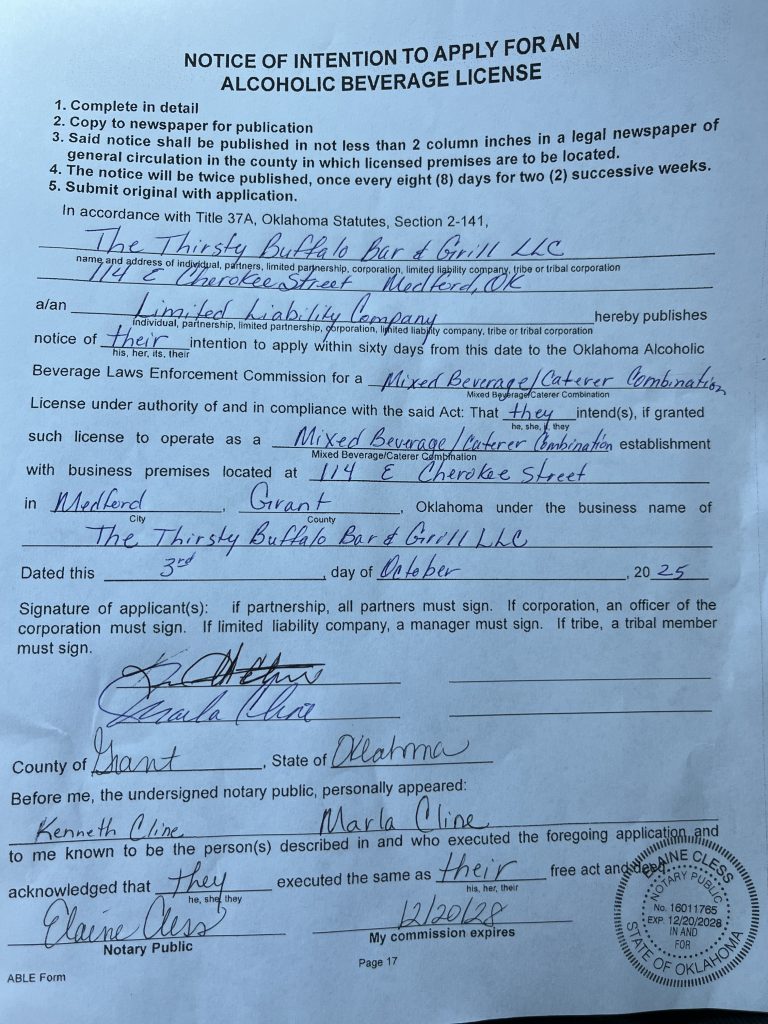 NOTICE OF INTENTION TO APPLY FOR AN
ALCOHOLIC BEVERAGE LICENSE
1. Complete in detail
2. Copy to newspaper for publication
3. Said notice shall be published in not less than 2 column inches in a legal newspaper of
general circulation in the county in which licensed premises are to be located.
4. The notice will be twice published, once every eight (8) days for two (2) successive weeks.
5. Submit original with application.
In accordance with Title 37A, Oklahoma Statutes, Section 2-141,
The Thirsty Buffalo Bar & Grill LLC
name and address of individual, partners, limited partnership, corporation, limited liability company, tribe or tribal corporation
114 E Cherokee Street Medford, OK
a/an Limited Liability Company hereby publishes
individual, partnership, limited partnership, corporation, limited liability company, tribe or tribal corporation
notice of their intention to apply within sixty days from this date to the Oklahoma Alcoholic
his, her, its, their
Beverage Laws Enforcement Commission for a Mixed Beverage/Caterer Combination
Mixed Beverage/Caterer Combination
License under authority of and in compliance with the said Act: That they intend(s), if granted
he, she, it, they
such license to operate as a Mixed Beverage/Caterer Combination establishment
Mixed Beverage/Caterer Combination
with business premises located at 114 E Cherokee Street
in Medford, Grant, Oklahoma under the business name of
City County
The Thirsty Buffalo Bar & Grill LLC
Dated this 3rd, day of October, 20 25
Signature of applicant(s): if partnership, all partners must sign. If corporation, an officer of the
corporation must sign. If limited liability company, a manager must sign. If tribe, a tribal member
must sign.
Marla Cline
County of Grant, State of Oklahoma
Before me, the undersigned notary public, personally appeared:
Kenneth Cline Marla Cline
to me known to be the person(s) described in and who executed the foregoing application, and
acknowledged that they executed the same as their free act and deed.
he, she, they his, her, their
Elaine Cless 12/20/28
Notary Public My commission expires
ELAINE CLESS
NOTARY PUBLIC
No. 16011765
EXP. 12/20/2028
IN AND
FOR
STATE OF OKLAHOMA
Page 17
ABLE Form